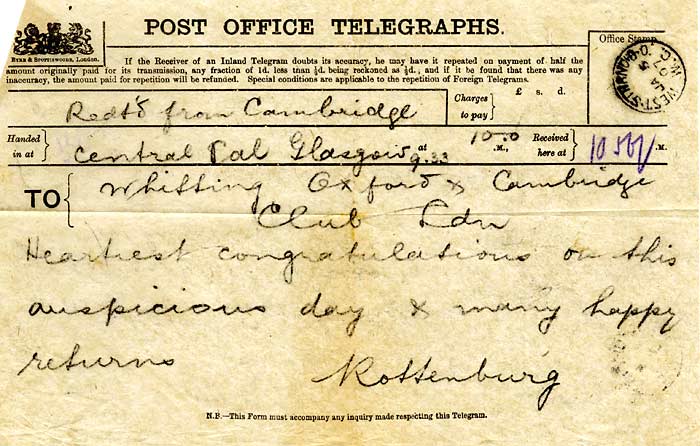 POST OFFICE TELEGRAPHS.
Eyre & Spottiswoode, London.
Office Stamp.
If the Receiver of an Inland Telegram doubts its accuracy, he may have it repeated on payment of half the
amount originally paid for its transmission, any fraction of 1d. less than ½d. being reckoned as ½d.; and if it be found that there was any
inaccuracy, the amount paid for repetition will be refunded. Special conditions are applicable to the repetition of Foreign Telegrams.
Redtd from Cambridge
Charges to pay
£ s. d.
WEST-STRAND B.O. W.C.
Handed in at
Central Glasgow at 9.33
10.0 .M.,
Received here at
.M.
TO
Whitting Oxford & Cambridge
Club Ldn
Heartiest congratulations on this
auspicious day & many happy
returns
Rottenburg
N.B.—This Form must accompany any inquiry made respecting this Telegram.